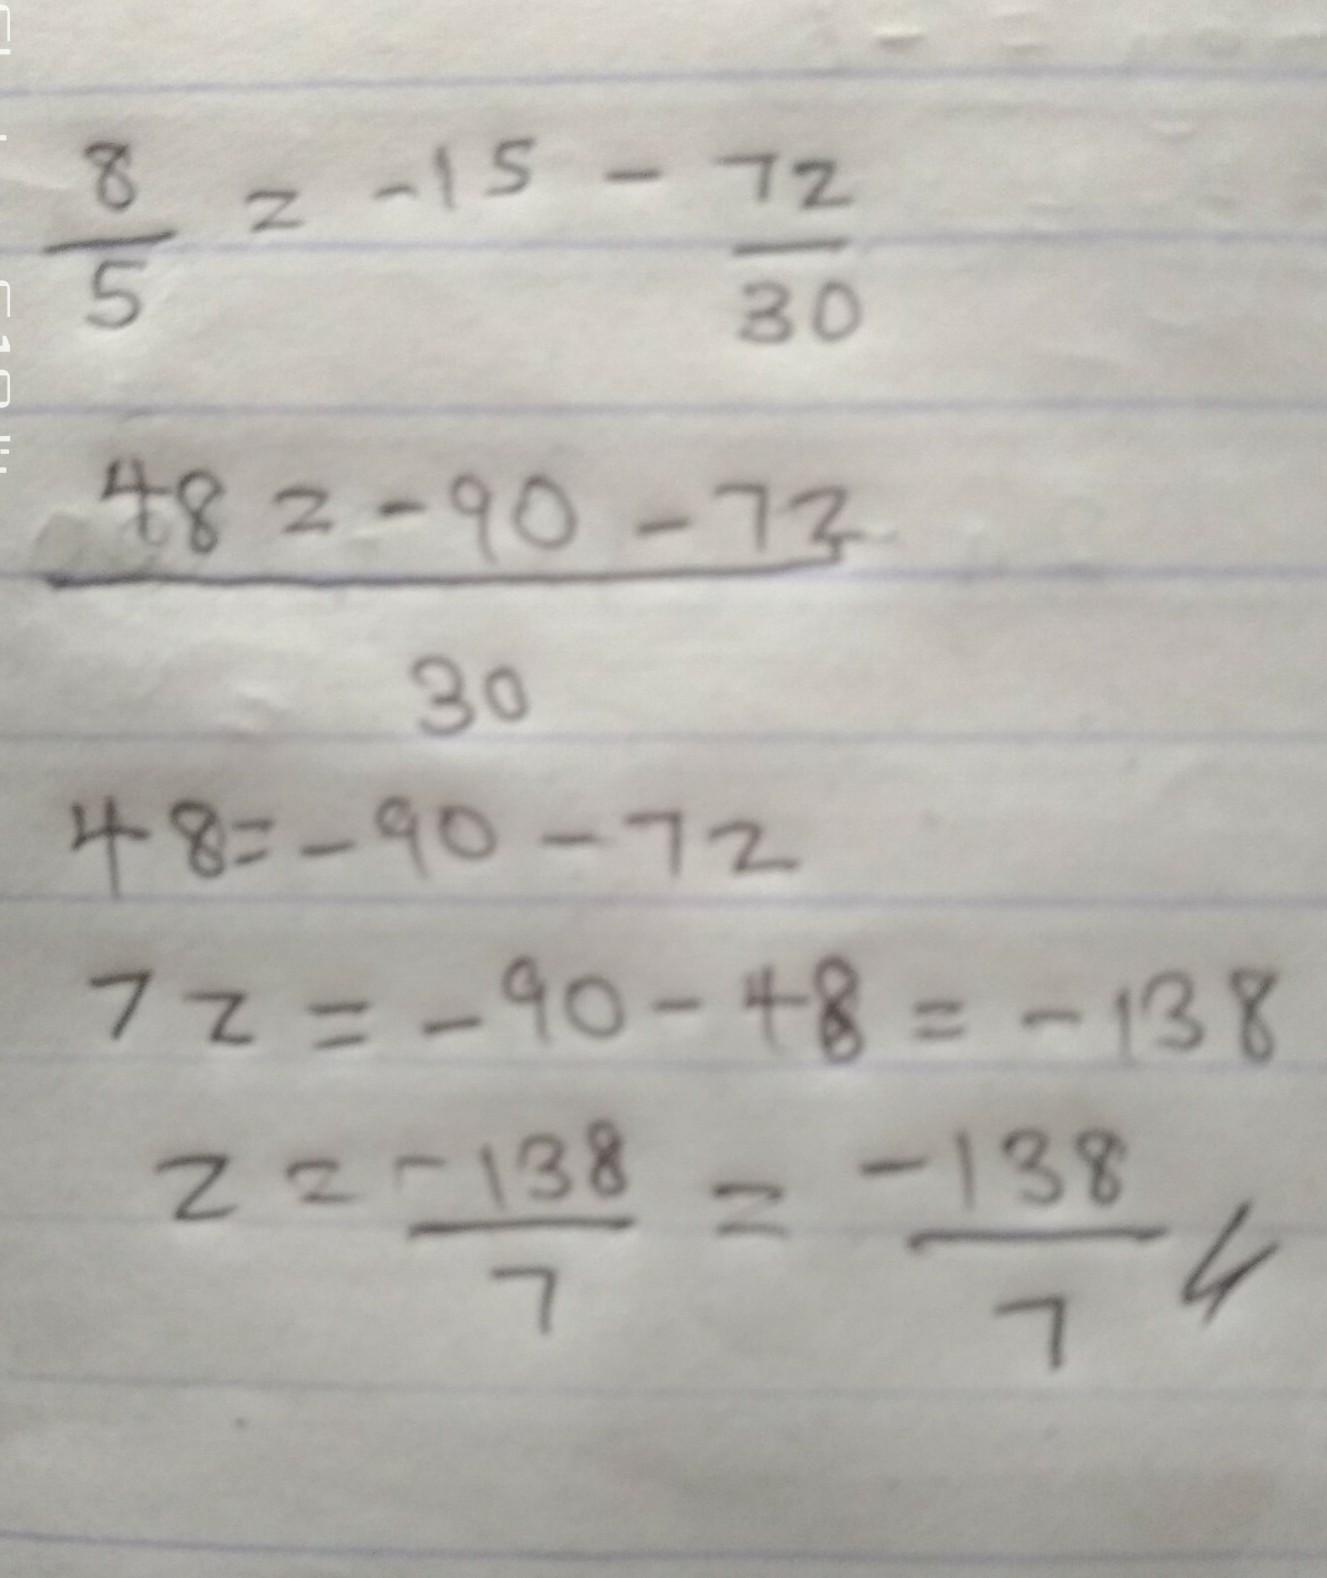 8/5 = -15 - 7z/30
48 = -90 - 7z
30
48 = -90 - 7z
7z = -90 - 48 = -138
z = -138/7 = -138/7